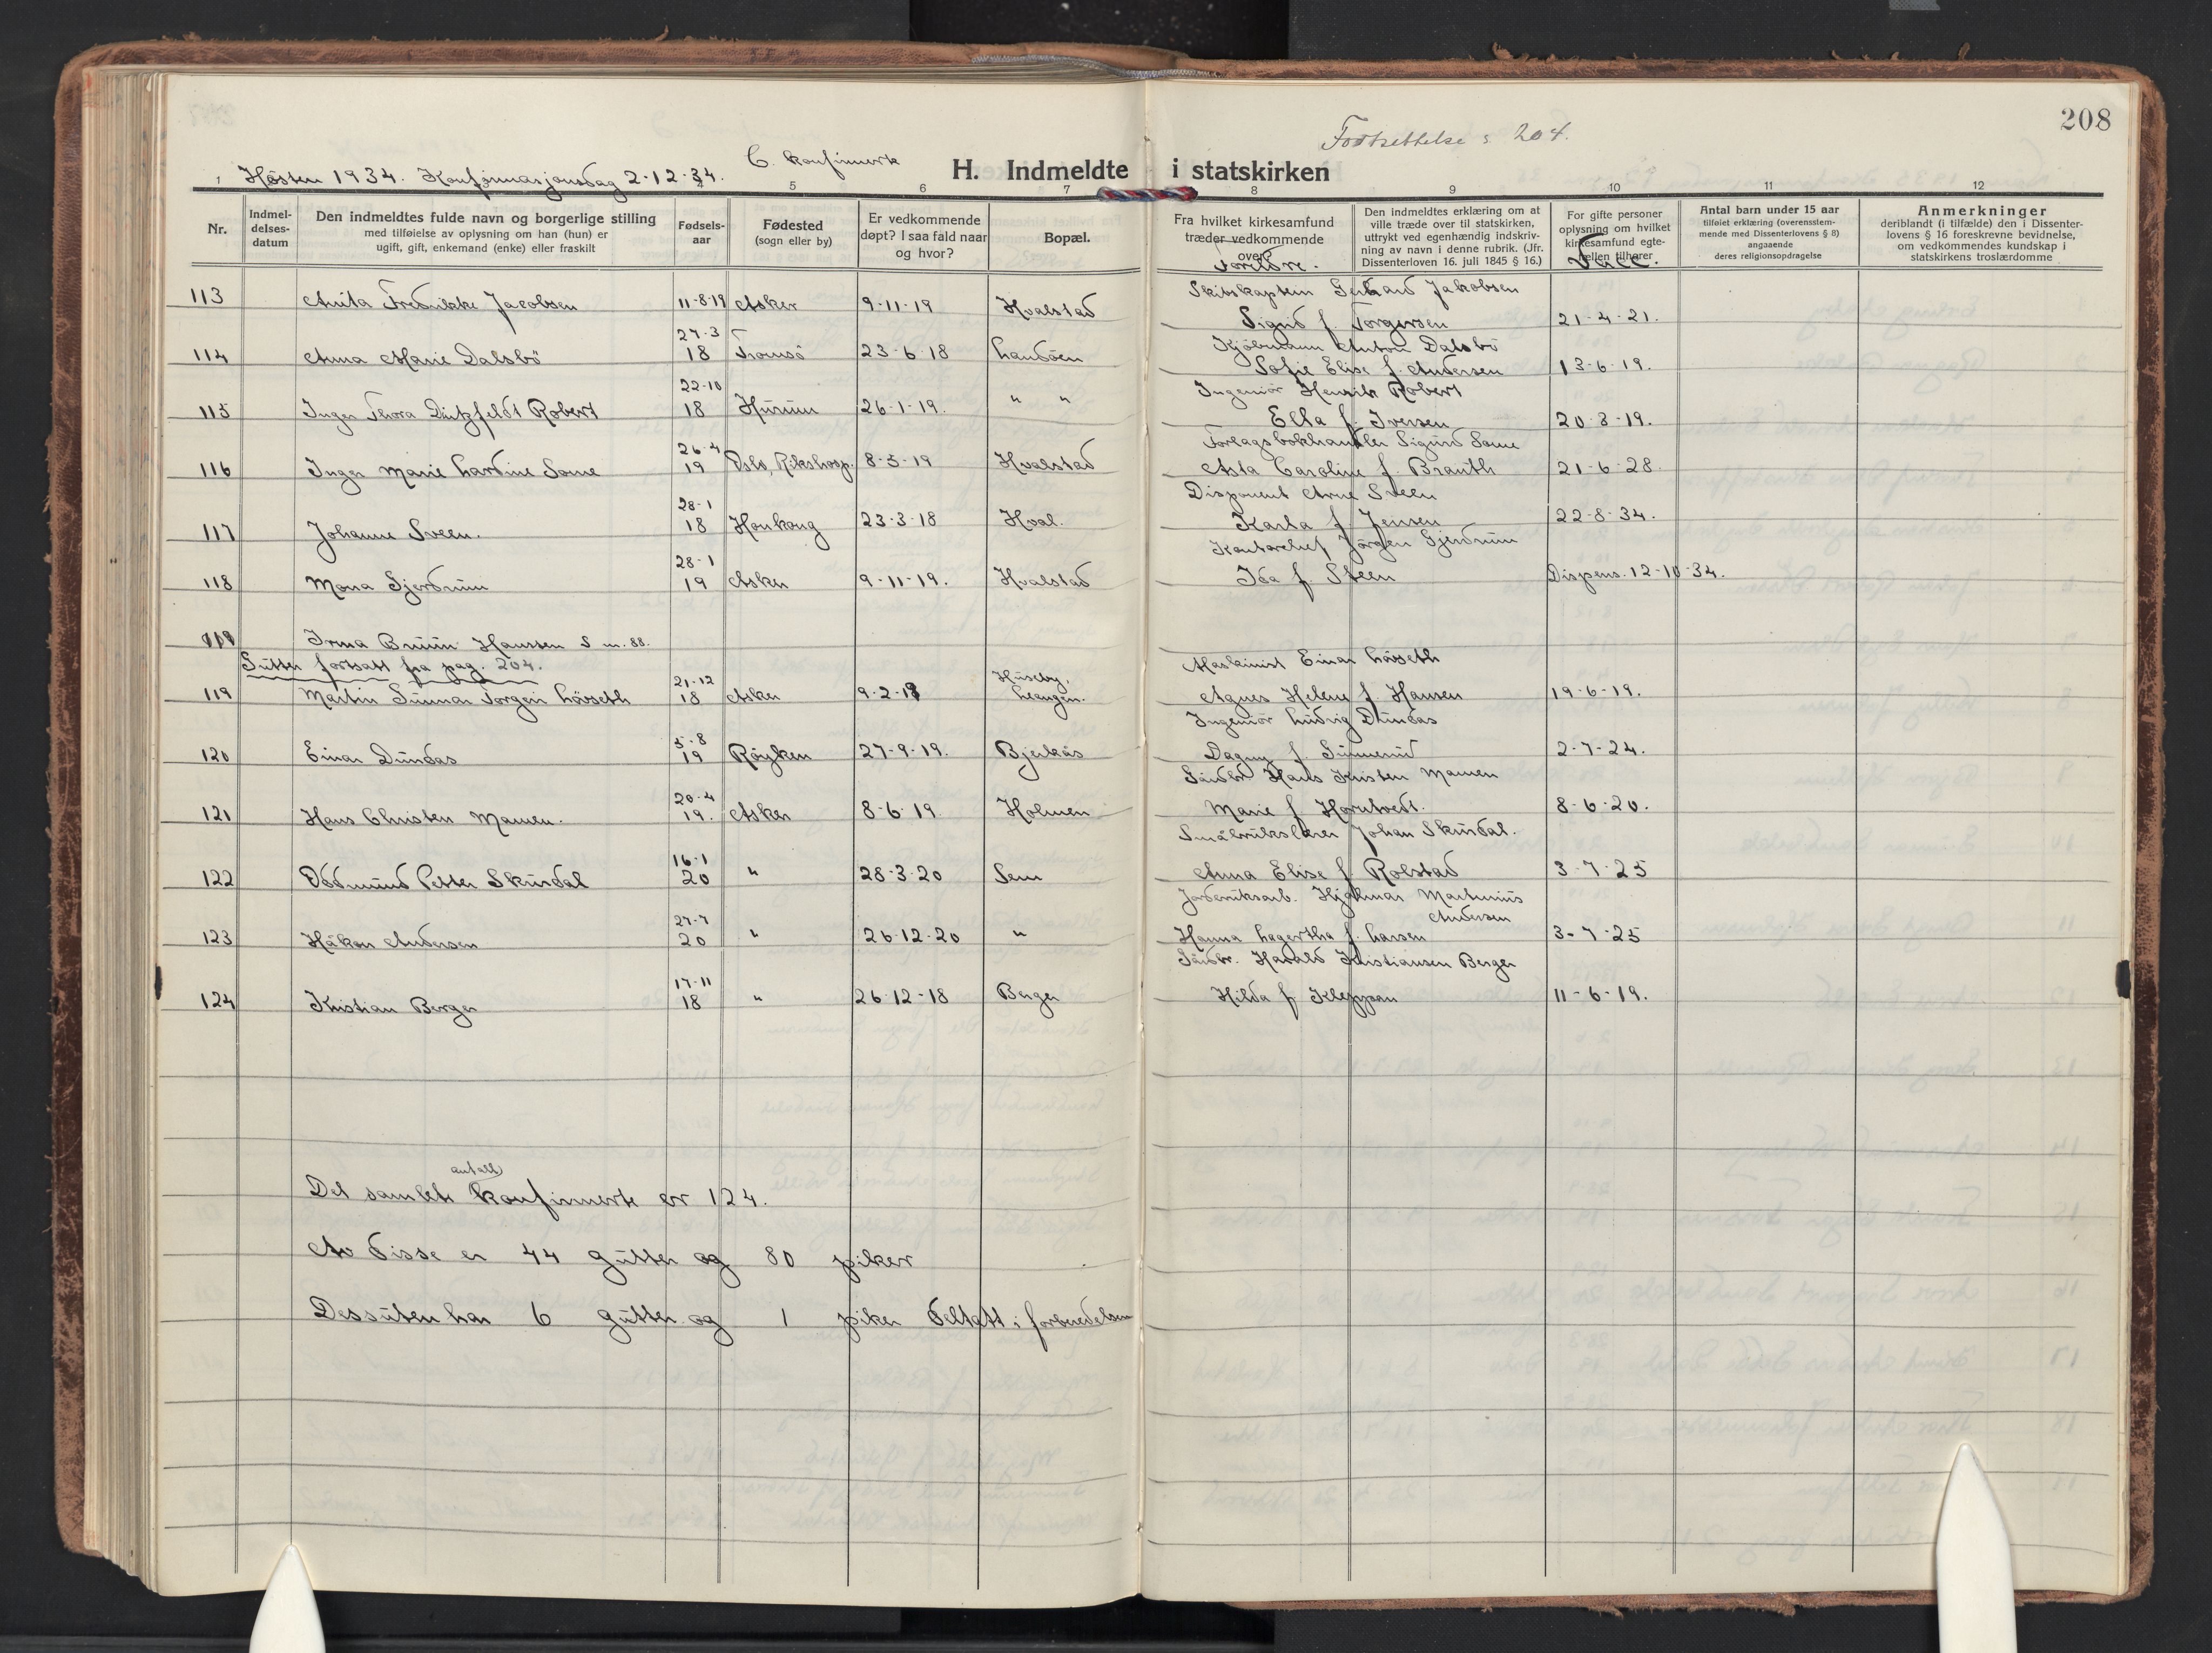 208
Fortsettelse s 204.
C. Konfirmerte
Høsten 1934. Konfirmasjonsdag 2-12-34.
H. Indmeldte i statskirken
5 6 7 8 9 10 11 12
Nr.
Indmel-
delses-
datum
Den indmeldtes fulde navn og borgerlige stilling
med tilføielse av oplysning om han (hun) er
ugift, gift, enkemand (enke) eller fraskilt
Fødsels-
aar
Fødested
(sogn eller by)
Er vedkommende
døpt? I saa fald naar
og hvor?
Bopæl.
Fra hvilket kirkesamfund
træder vedkommende
over?
Foreldre.
Den indmeldtes erklæring om at
ville træde over til statskirken,
uttrykt ved egenhændig indskriv-
ning av navn i denne rubrik. (Jfr.
Dissenterloven 16. juli 1845 § 16.)
For gifte personer
oplysning om hvilket
kirkesamfund egte-
fællen tilhører
Vacc.
Antal barn under 15 aar
tilføiet erklæring (overensstem-
mende med Dissenterlovens § 8)
angaaende
deres religionsopdragelse
Anmerkninger
deriblandt (i tilfælde) den i Dissenter-
lovens § 16 foreskrevne bevidnelse,
om vedkommendes kundskap i
statskirkens troslærdomme
Skibskaptein Gerhard Jakobsen
113 Anita Fredrikke Jacobsen 11-8-19 Asker 9-11-19 Hvalstad Sigrid f. Torgersen 21-4-21.
27-3 Kjøbmann Anton Dalsbö
114 Anna Marie Dalsbö 18 Tromsö 23-6-18 Landöen Sofie Elise f. Andersen 13-6-19.
22-10 Ingeniör Henrik Robert
115 Inger Thora Ditzfeldt Robert 18 Hurum 26-1-19. " " Ella f. Iversen 20-3-19.
26-4 Forlagsbokhandler Sigurd Some
116 Inger Marie Lardine Some 19 Oslo, Rikshosp. 8-5-19 Hvalstad Asta Caroline f. Branth 21-6-28.
28-1 Disponent Arne Sveen
117 Johanne Sveen. 18 Honkong 23-3-18 Hval. Karla f. Jensen 22-8-34.
28-1 Kontorchef Jörgen Gjerdrum
118 Mona Gjerdrum 19 Asker 9-11-19. Hvalstad Ida f. Steen Dispens. 12-10-34.
119 Irma Bruun Hanssen S nr. 88.
Gutter fortsatt fra pag. 204.
21-12 Huseby, Maskinist Einar Lövseth
119 Martin Gunnar Torgeir Lövseth 18 Asker 9-2-19 Leangen. Agnes Helene f. Hansen 19-6-19.
5-8 Ingeniör Ludvig Dundas
120 Einar Dundas 19 Röyken 27-9-19. Bjerkås Dagny f. Simmerud 2-7-24.
20-4 Gårdbr. Hans Kristen Mamen
121 Hans Christen Mamen. 19. Asker 8-6-19. Holmen Marie f. Horntvedt. 8-6-20.
16-1 Småbrukslærer Johan Skurdal.
122 Oddmund Petter Skurdal 20 " 28-3-20 Sem Anna Elise f. Rolstad 3-7-25
27-7 Jordbruksarb. Hjalmar Martinius Andersen
123 Håkon Andersen 20 " 26-12-20 " Hanna Lagertha f. Larsen 3-7-25
17-11 Gårdbr. Harald Kristiansen Berger
124 Kristian Berger 18 " 26-12-18 Berger Hilda f. Kleppan 11-6-19.
antall
Det samlete konfirmerte er 124.
Av disse er 44 gutter og 80 piker
Dessuten har 6 gutter og 1 piker deltatt i forberedelsen